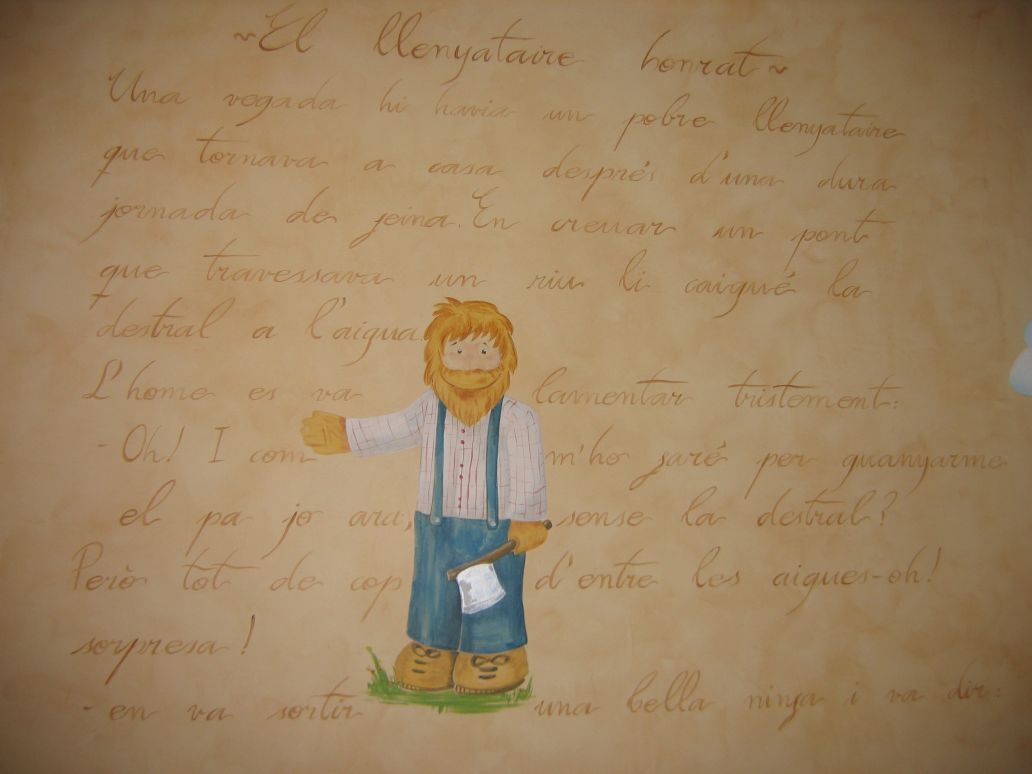 ~El llenyataire honrat~
Una vegada hi havia un pobre llenyataire
que tornava a casa després d'una dura
jornada de feina. En creuar un pont
que travessava un riu li caigué la
destral a l'aigua.
L'home es va lamentar tristament:
-Oh! I com m'ho faré per guanyarme
el pa jo ara, sense la destral?
Però tot de cop d'entre les aigues-oh!
sorpresa!
-en va sortir una bella ninfa i va dir: